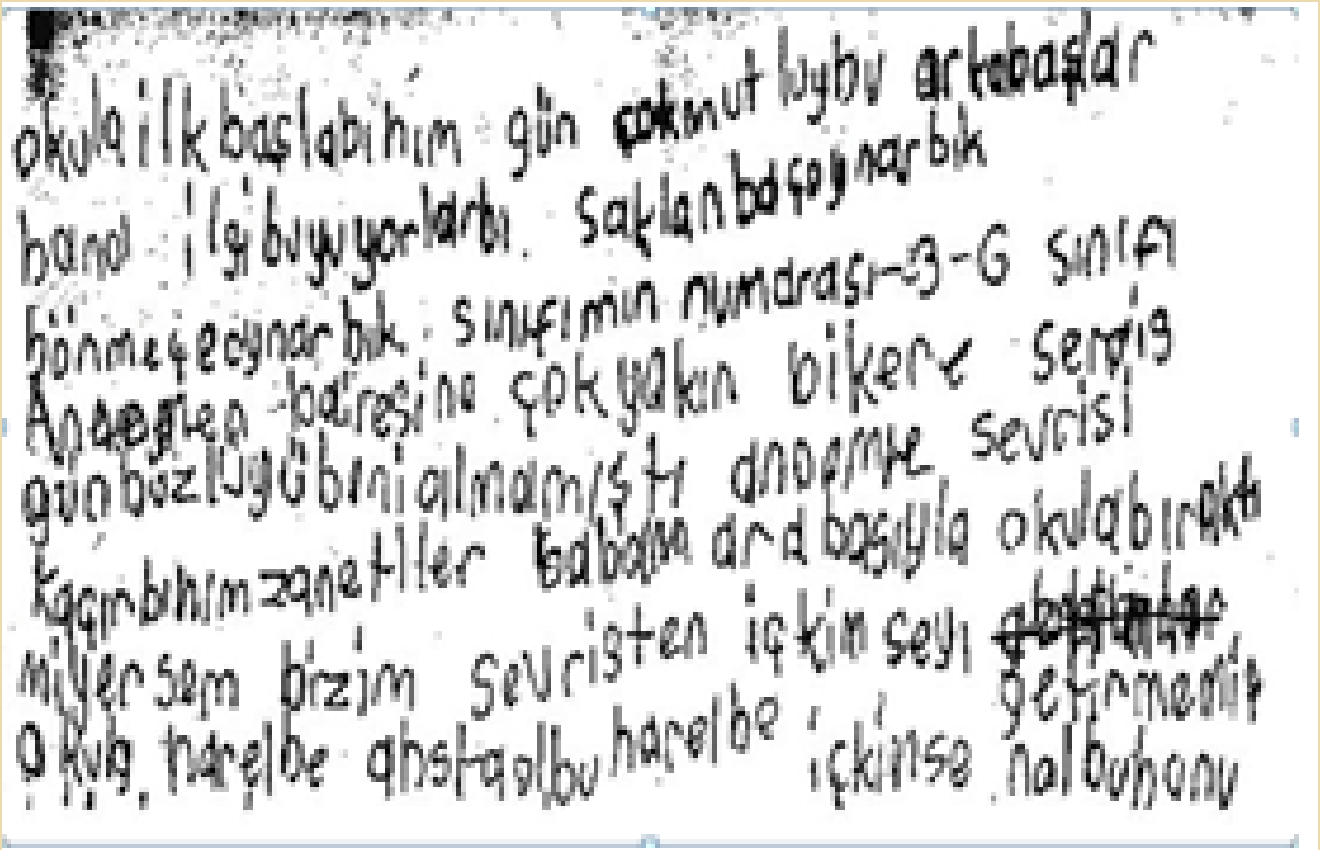 okula ilk başlabıhım gün çokmutluybu arkabaşlar
bana ilgi buyuyorlarbı. saklanbaçoynarbık
bönmeçeoynarbık. sınıfımın numarası-3-G sınıfı
bairesine çok yakın bikere servis
günbüzlüyü bini almamıştı annemle sevrisi
kaçırbıhımzanettiler babam arabasıyla okulabıraktı
bizim sevristen içkinseyi
getirmemiş
okula harelbe ahstaolbu harelbe içkinse nalbuhonu